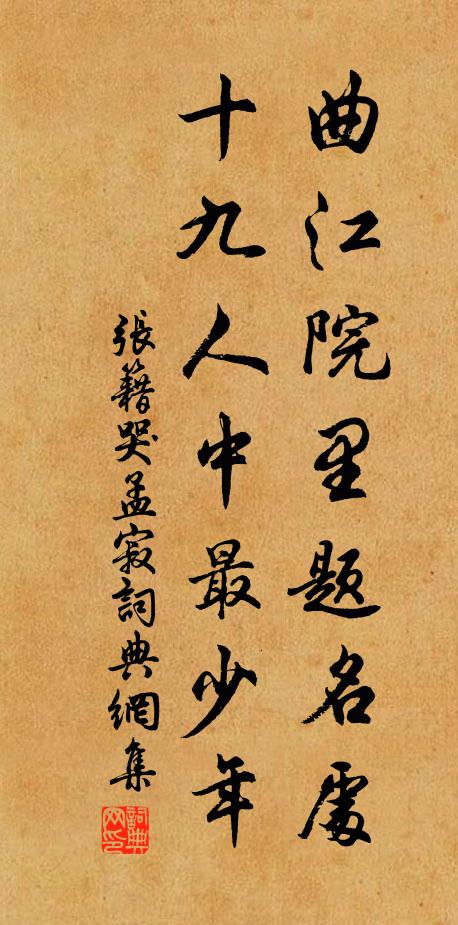 曲江院里题名處
十九人中最少年
張籍哭孟寂詞典網集
詞典网印